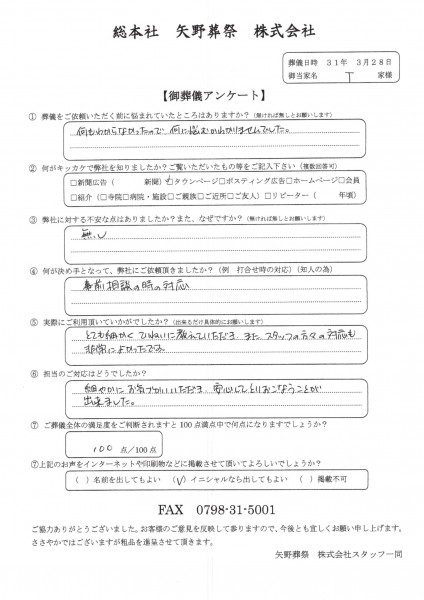 総本社 矢野葬祭 株式会社
葬儀日時 31年 3月28日
御当家名 T 家様
【御葬儀アンケート】
① 葬儀をご依頼いただく前に悩まれていたところはありますか？（無ければ無しとお願いします）
何もわからなかったので 何に悩むかわかりませんでした。
② 何がキッカケで弊社を知りましたか？ご覧いただいたもの等をご記入下さい（複数回答可）
□新聞広告（ 新聞）☑タウンページ□ポスティング広告□ホームページ□会員
□紹介（□寺院□病院・施設□ご親族□ご近所□ご友人）□リピーター（ 年頃）
③ 弊社に対する不安な点はありましたか？また、なぜですか？（無ければ無しとお願いします）
無し
④ 何が決め手となって、弊社にご依頼頂きましたか？（例 打合せ時の対応）（知人の為）
事前相談の時の対応
⑤ 実際にご利用頂いていかがでしたか？（出来るだけ具体的にお願いします）
とても細かく ていねいに教えていただき、また スタッフの方々の対応も
非常によかったです。
⑥ 担当のご対応はどうでしたか？
細やかに お気づかいいただき、安心してとりおこなうことが
出来ました。
⑦ ご葬儀全体の満足度をご判断されますと100点満点中で何点になりますでしょうか？
100 点/100点
⑦上記のお声をインターネットや印刷物などに掲載させて頂いてよろしいでしょうか？
（ ）名前を出してもよい （✓）イニシャルなら出してもよい （ ）掲載不可
FAX 0798-31-5001
ご協力ありがとうございました。お客様のご意見を反映して参りますので、今後とも宜しくお願い申し上げます。
ささやかではございますが粗品を進呈させて頂きます。
矢野葬祭 株式会社スタッフ一同